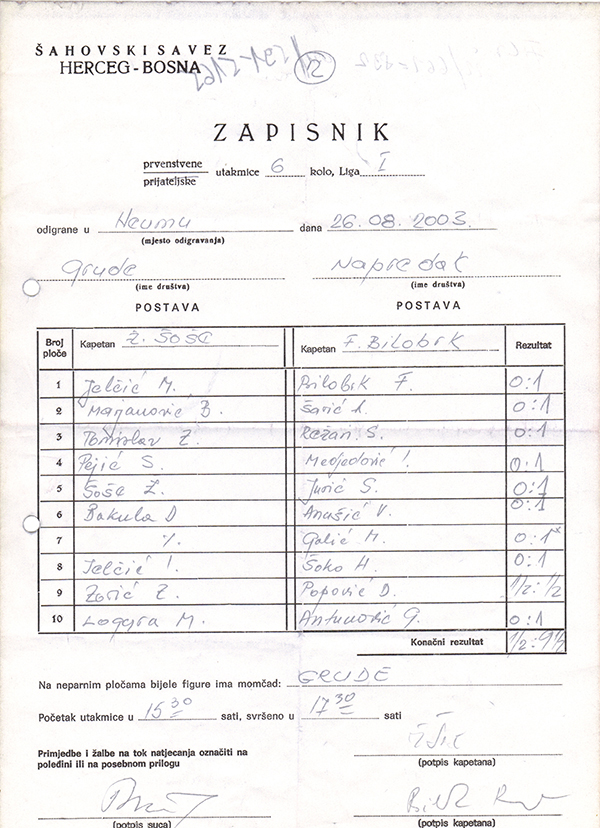 ŠAHOVSKI SAVEZ
HERCEG-BOSNA
12
ZAPISNIK
prvenstvene
prijateljske
utakmice 6 kolo, Liga I
odigrane u Neumu dana 26.08.2003.
(mjesto odigravanja)
Grude Napredak
(ime društva) (ime društva)
POSTAVA POSTAVA
Broj ploče Kapetan Ž. Šoše Kapetan F. Bilobrk Rezultat
1 Jelčić M. Bilobrk F. 0:1
2 Marjanović B. Šarić A. 0:1
3 Tomislav Z. Režan S. 0:1
4 Pejić S. Medjedović I. 0:1
5 Šoše Ž. Jurić S. 0:1
6 Bakula D Anušić V. 0:1
7 %. Galić M. 0:1*
8 Jelčić I. Šoko H. 0:1
9 Zorić Z. Popović D. 1/2:1/2
10 M. Antunović G. 0:1
Konačni rezultat 1/2:9 1/2
Na neparnim pločama bijele figure ima momčad: GRUDE
Početak utakmice u 15 30 sati, svršeno u 17 30 sati
Primjedbe i žalbe na tok natjecanja označiti na
poleđini ili na posebnom prilogu
(potpis kapetana)
(potpis suca) (potpis kapetana)